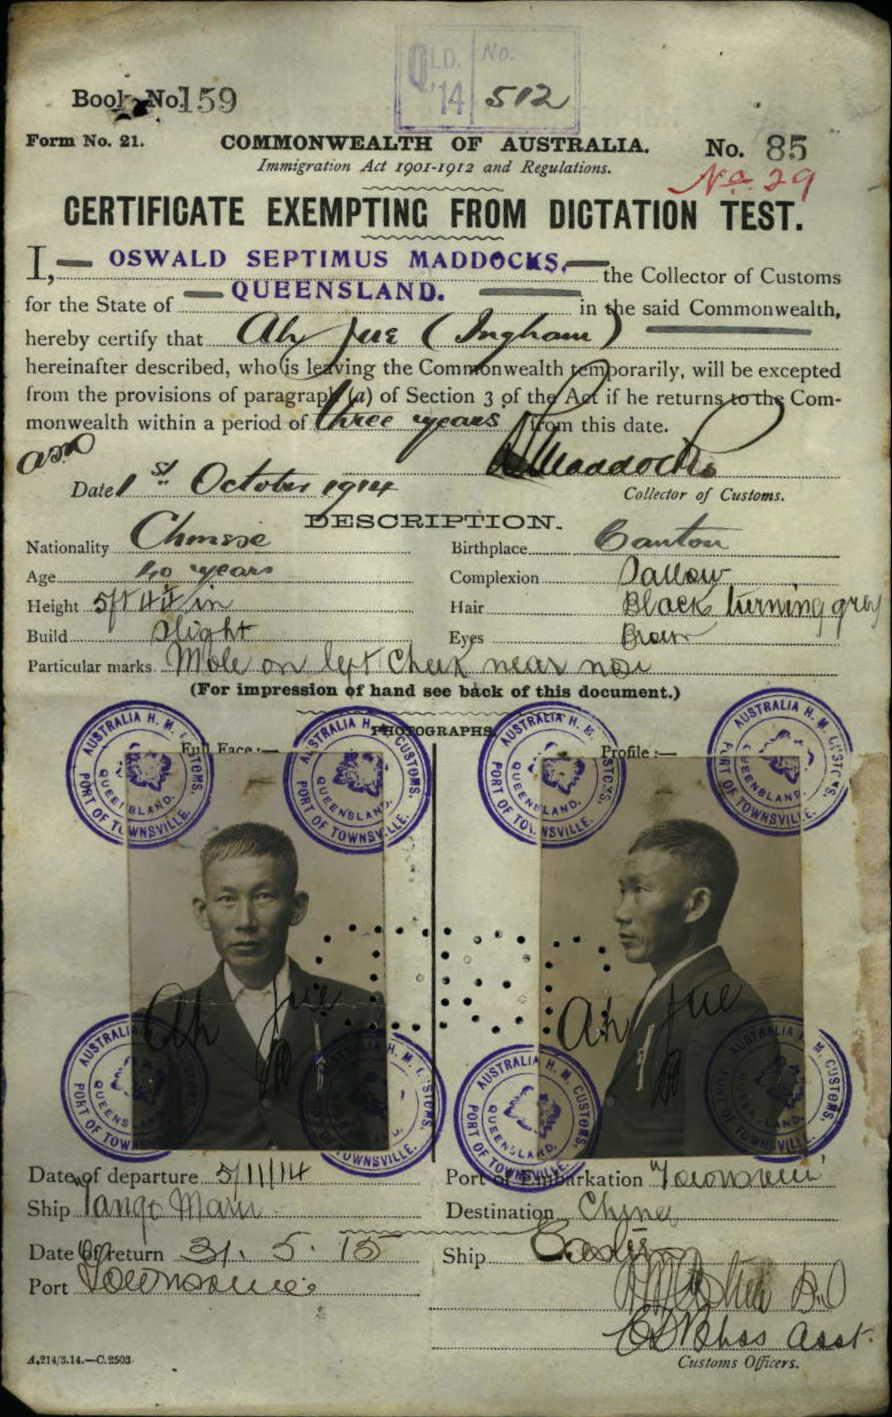 QLD. No.
'14 512
Book No. 159
Form No. 21. COMMONWEALTH OF AUSTRALIA. No. 85
Immigration Act 1901-1912 and Regulations.
No. 29
CERTIFICATE EXEMPTING FROM DICTATION TEST.
I, OSWALD SEPTIMUS MADDOCKS, the Collector of Customs
for the State of QUEENSLAND. in the said Commonwealth,
hereby certify that Ah Jue (Ingham)
hereinafter described, who is leaving the Commonwealth temporarily, will be excepted
from the provisions of paragraph (a) of Section 3 of the Act if he returns to the Com-
monwealth within a period of three years from this date.
Maddocks
Date 1st October 1914 Collector of Customs.
DESCRIPTION.
Nationality Chinese Birthplace Canton
Age 40 years Complexion Sallow
Height 5ft 4¼ in Hair Black turning grey
Build Slight Eyes Brown
Particular marks Mole on left cheek near nose
(For impression of hand see back of this document.)
PHOTOGRAPHS.
Full Face :— Profile :—
AUSTRALIA H. M. CUSTOMS. PORT OF TOWNSVILLE. QUEENSLAND.
AUSTRALIA H. M. CUSTOMS. PORT OF TOWNSVILLE. QUEENSLAND.
AUSTRALIA H. M. CUSTOMS. PORT OF TOWNSVILLE. QUEENSLAND.
AUSTRALIA H. M. CUSTOMS. PORT OF TOWNSVILLE. QUEENSLAND.
Ah Jue Ah Jue
AUSTRALIA H. M. CUSTOMS. PORT OF TOWNSVILLE. QUEENSLAND.
AUSTRALIA H. M. CUSTOMS. PORT OF TOWNSVILLE.
AUSTRALIA H. M. CUSTOMS. PORT OF TOWNSVILLE. QUEENSLAND.
AUSTRALIA H. M. CUSTOMS. PORT OF TOWNSVILLE.
Date of departure 5/11/14 Port of Embarkation Townsville
Ship Tango Maru Destination China
Date of return 31. 5. 15 Ship Eastern
Port Townsville
Asst.
A.214/3.14.—C.2503. Customs Officers.